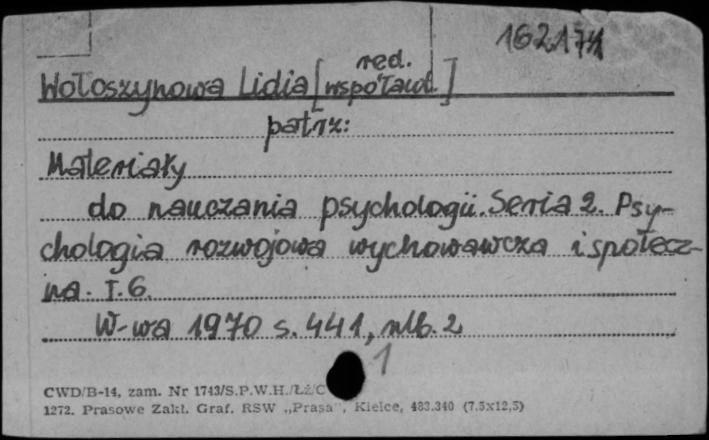 162174
Wołoszynowa Lidia [red. współaut.]
patrz:
Materiały
do nauczania psychologii. Seria 2. Psy-
chologia rozwojowa wychowawcza i społecz-
na. T.6.
W-wa 1970 s. 441, nlb. 2
1
CWD/B-14, zam. Nr 1743/S.P.W.H./Łź/C
1272. Prasowe Zakł. Graf. RSW „Prasa”, Kielce, 483.340 (7.5x12,5)